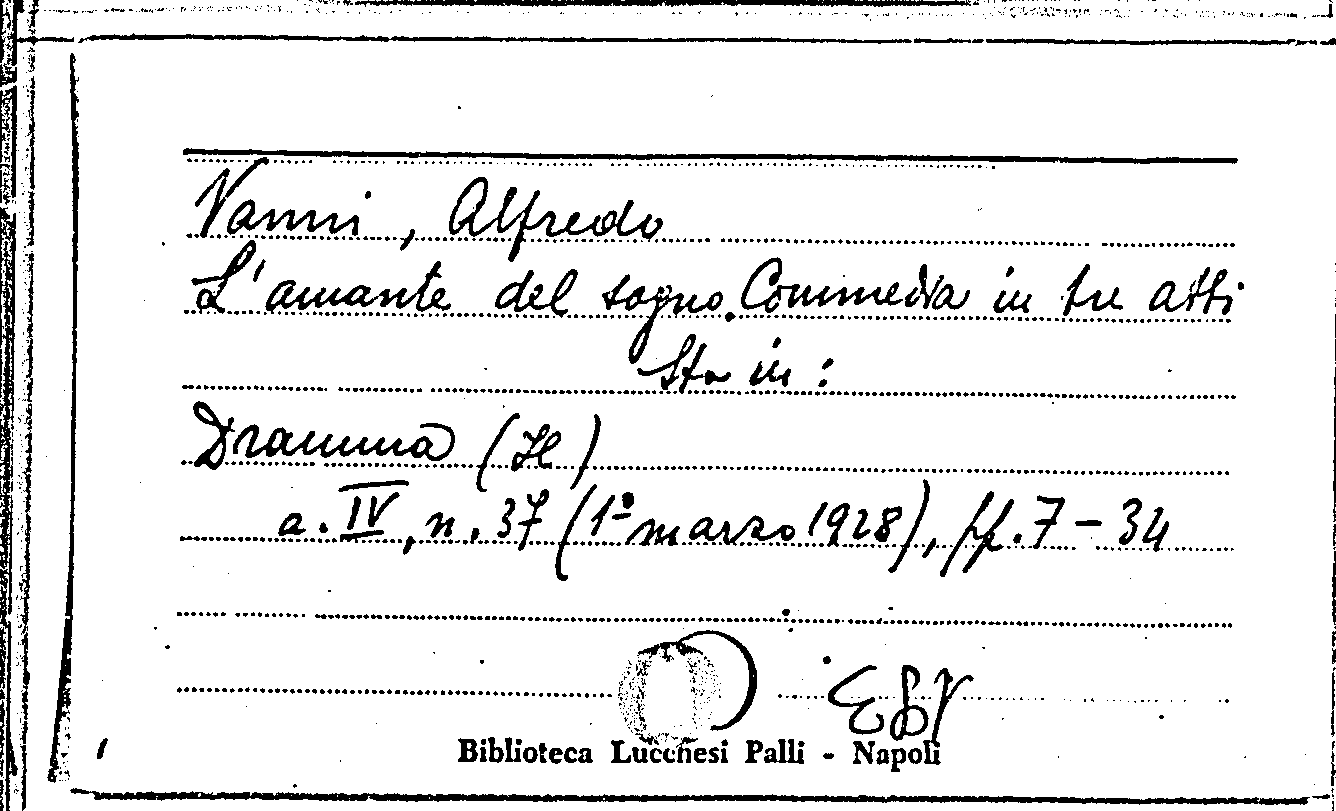 Vanni, Alfredo
L'amante del sogno. Commedia in tre atti
Sta in:
Dramma (Il)
a. IV, n. 37 (1º marzo 1928), pp. 7-34
Biblioteca Lucchesi Palli - Napoli